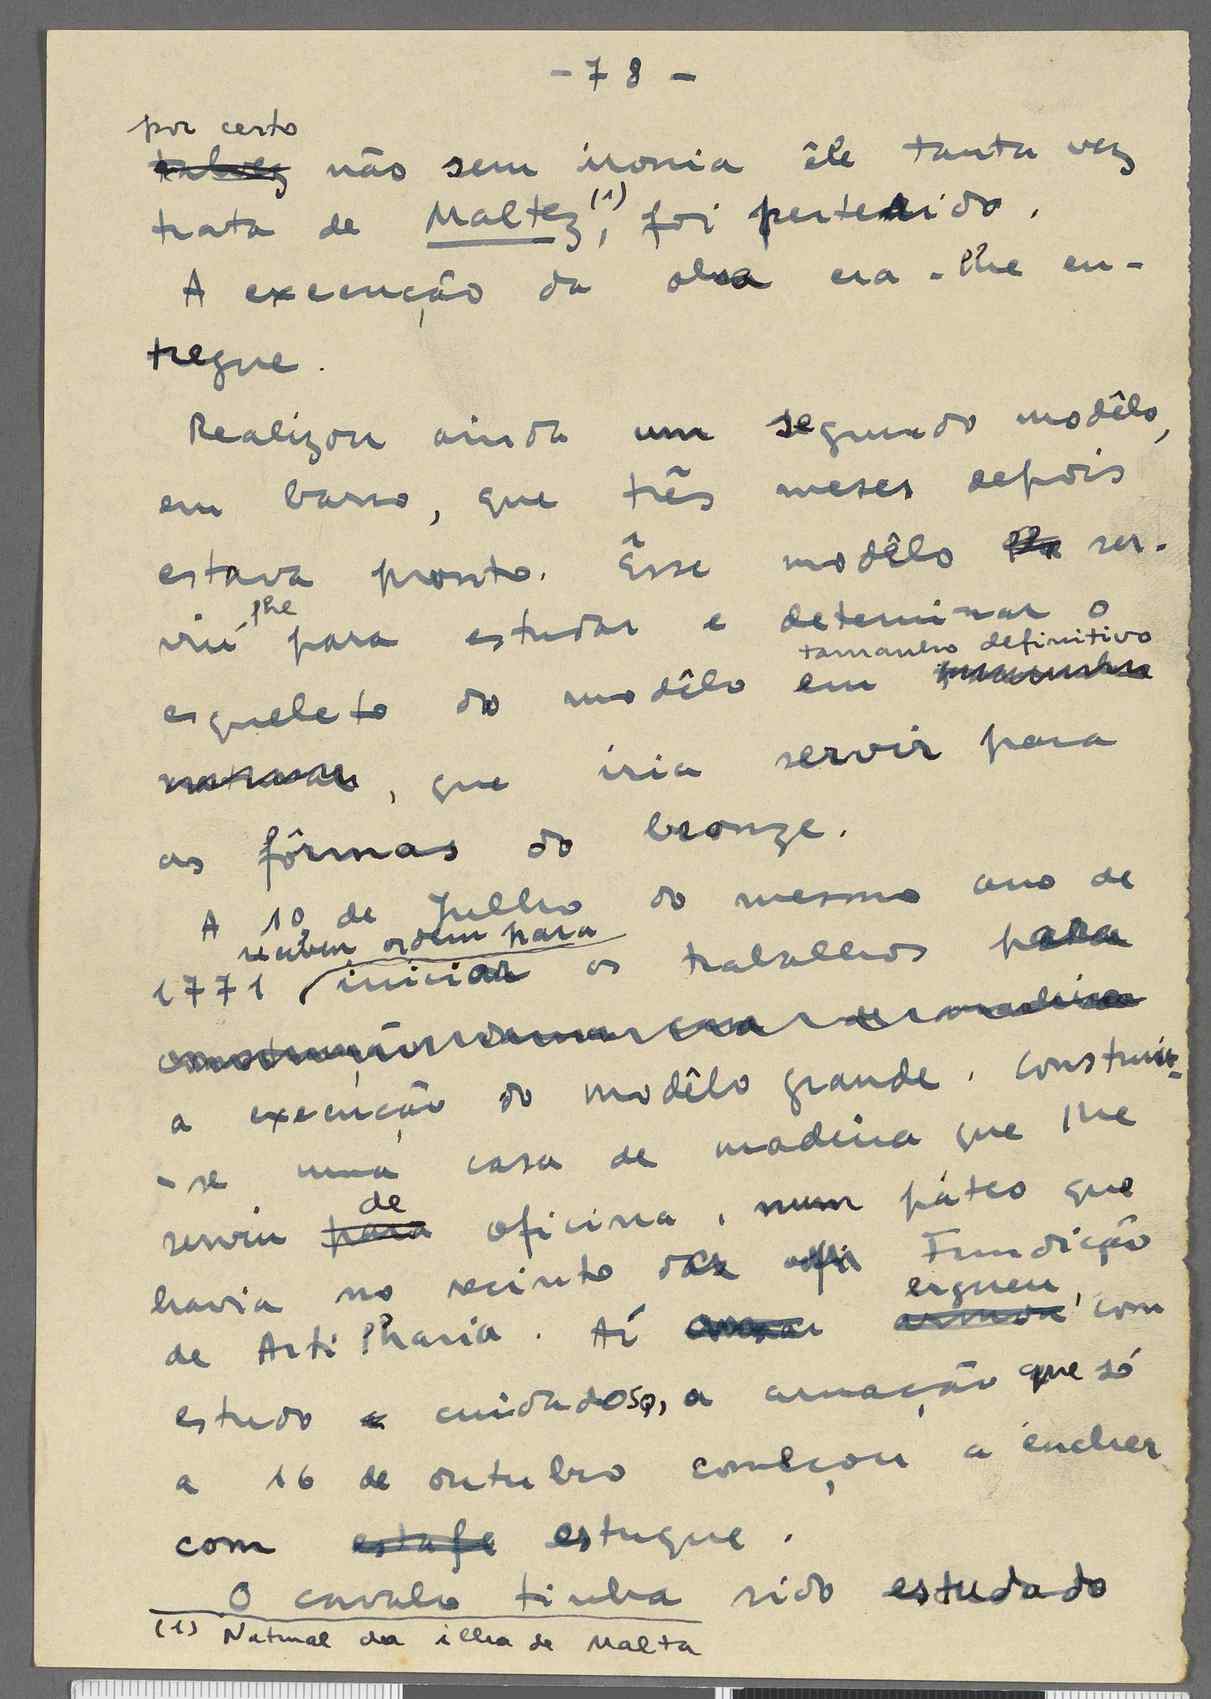 - 78 -
por certo
talvez não sem ironia êle tanta vez
trata de Maltez,(1) foi preterido.
A execução da obra era-lhe en-
tregue.
Realizou ainda um segundo modêlo,
em barro, que três meses depois
estava pronto. Êsse modêlo lhe ser-
viu-lhe para estudar e determinar o
tamanho definitivo
esqueleto do modêlo em tamanho
natural, que iria servir para
as fôrmas do bronze.
A 10 de Julho do mesmo ano de
recebeu ordem para
1771 iniciar os trabalhos para
construção duma casa de madeira
a execução do modêlo grande. Construiu-
-se uma casa de madeira que lhe
de
serviu para oficina, num páteo que
havia no recinto da Fundição
ergueu,
de Artilharia. Aí armou com
estudo cuidadoso, a armação que só
a 16 de outubro começou a encher
com estafe estuque.
O cavalo tinha sido estudado
(1) Natural da ilha de Malta